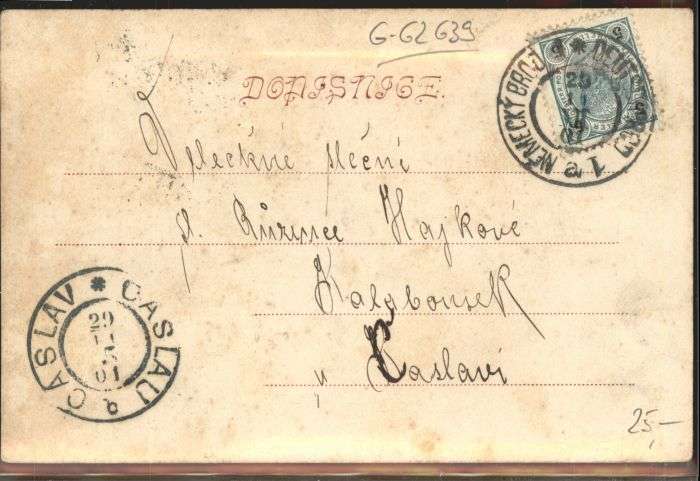 G-62639
DOPISNICE.
NĚMECKÝ BROD * DEUTSCHBROD
1 a
29
Velectěné slečně
sl. Růžince Hajkové
Kalabousek
u Čáslavi
CASLAV * CASLAU
29
01
25,-